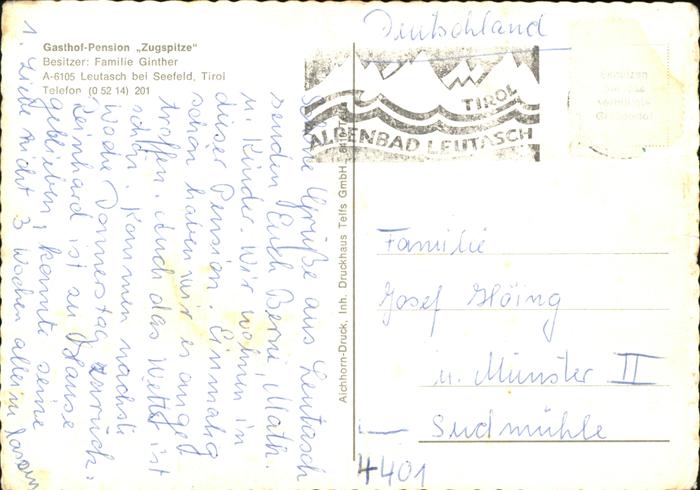 Gasthof-Pension „Zugspitze"
Besitzer: Familie Ginther
A-6105 Leutasch bei Seefeld, Tirol
Telefon (0 52 14) 201
Schöne Grüße aus Leutasch
senden Euch Math.
u. Kinder. Wir wohnen in
dieser Pension. Einmalig
schön haben wir es anget
troffen. Auch das Wetter ist
schön. Kommen nächste
Woche Donnerstag zurück.
Reinhard ist zu Hause
geblieben, konnte seine
Liebe nicht 3 Wochen allein lassen
1.
Aichhorn-Druck, Inh. Druckhaus Telfs GmbH.
Deutschland
TIROL
ALPENBAD LEUTASCH
Familie
Josef Höing
u. Münster II
Sudmühle
4401